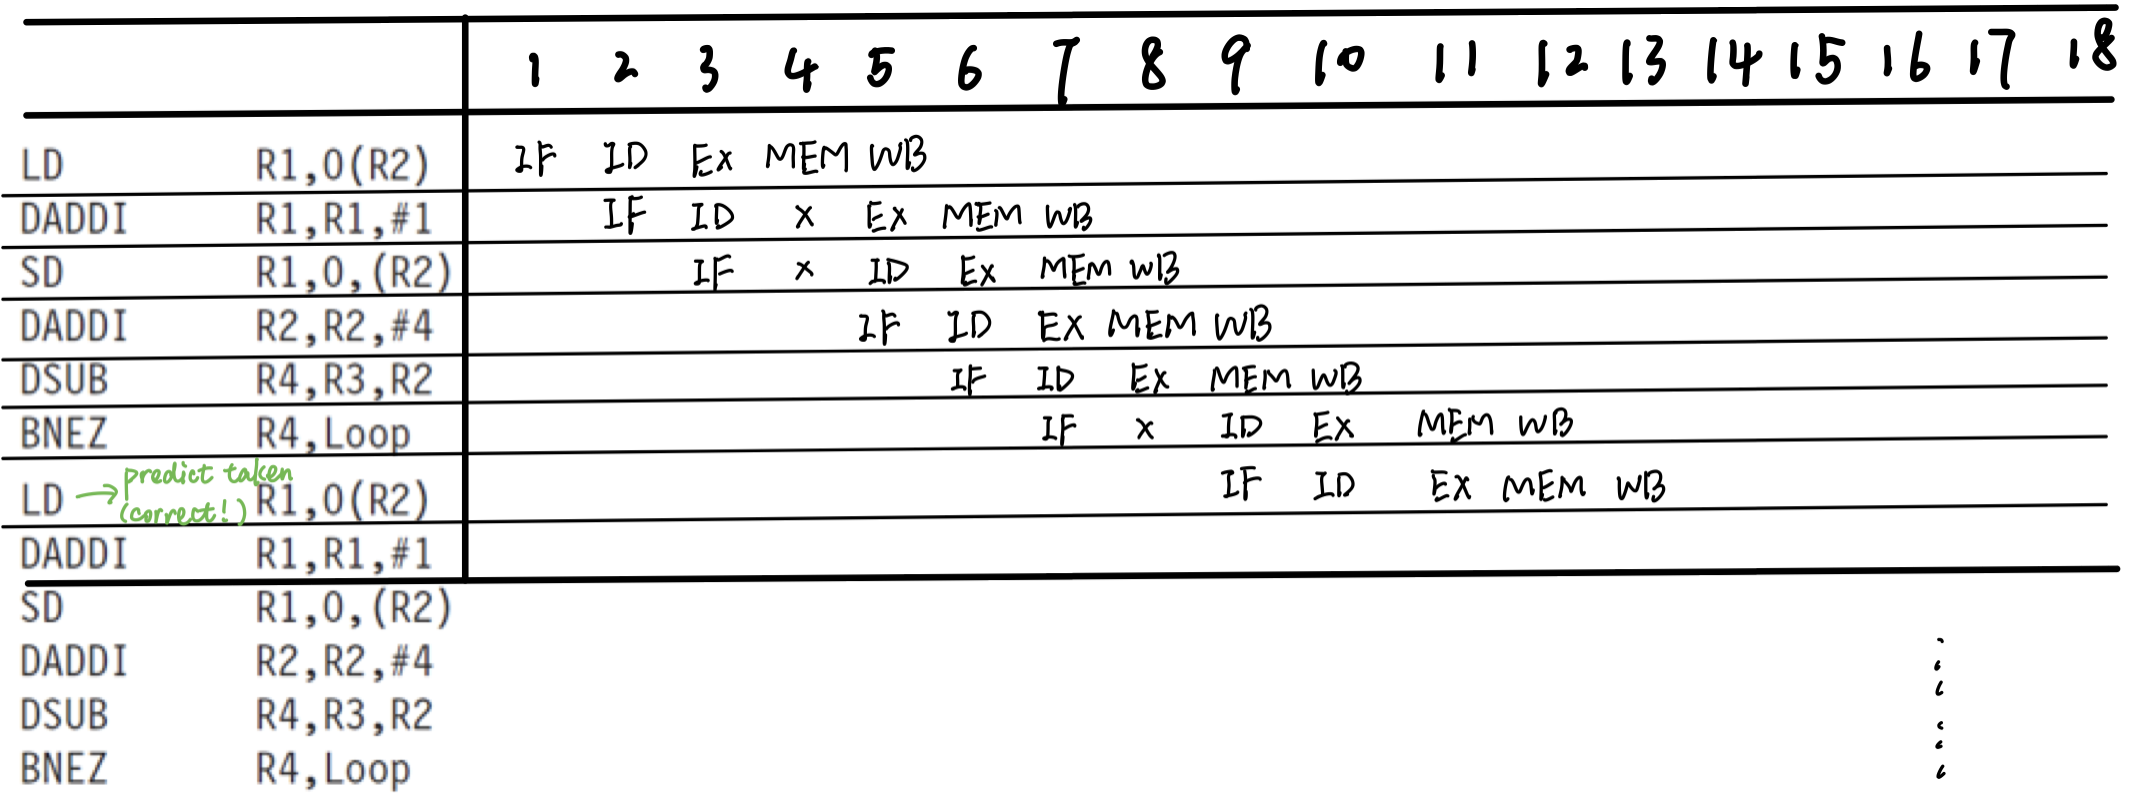 1 2 3 4 5 6 7 8 9 10 11 12 13 14 15 16 17 18
LD R1,0(R2) IF ID EX MEM WB
DADDI R1,R1,#1 IF ID X EX MEM WB
SD R1,0,(R2) IF X ID EX MEM WB
DADDI R2,R2,#4 IF ID EX MEM WB
DSUB R4,R3,R2 IF ID EX MEM WB
BNEZ R4,Loop IF X ID EX MEM WB
predict taken
LD → R1,0(R2) IF ID EX MEM WB
(correct!)
DADDI R1,R1,#1
SD R1,0,(R2)
DADDI R2,R2,#4
DSUB R4,R3,R2
BNEZ R4,Loop